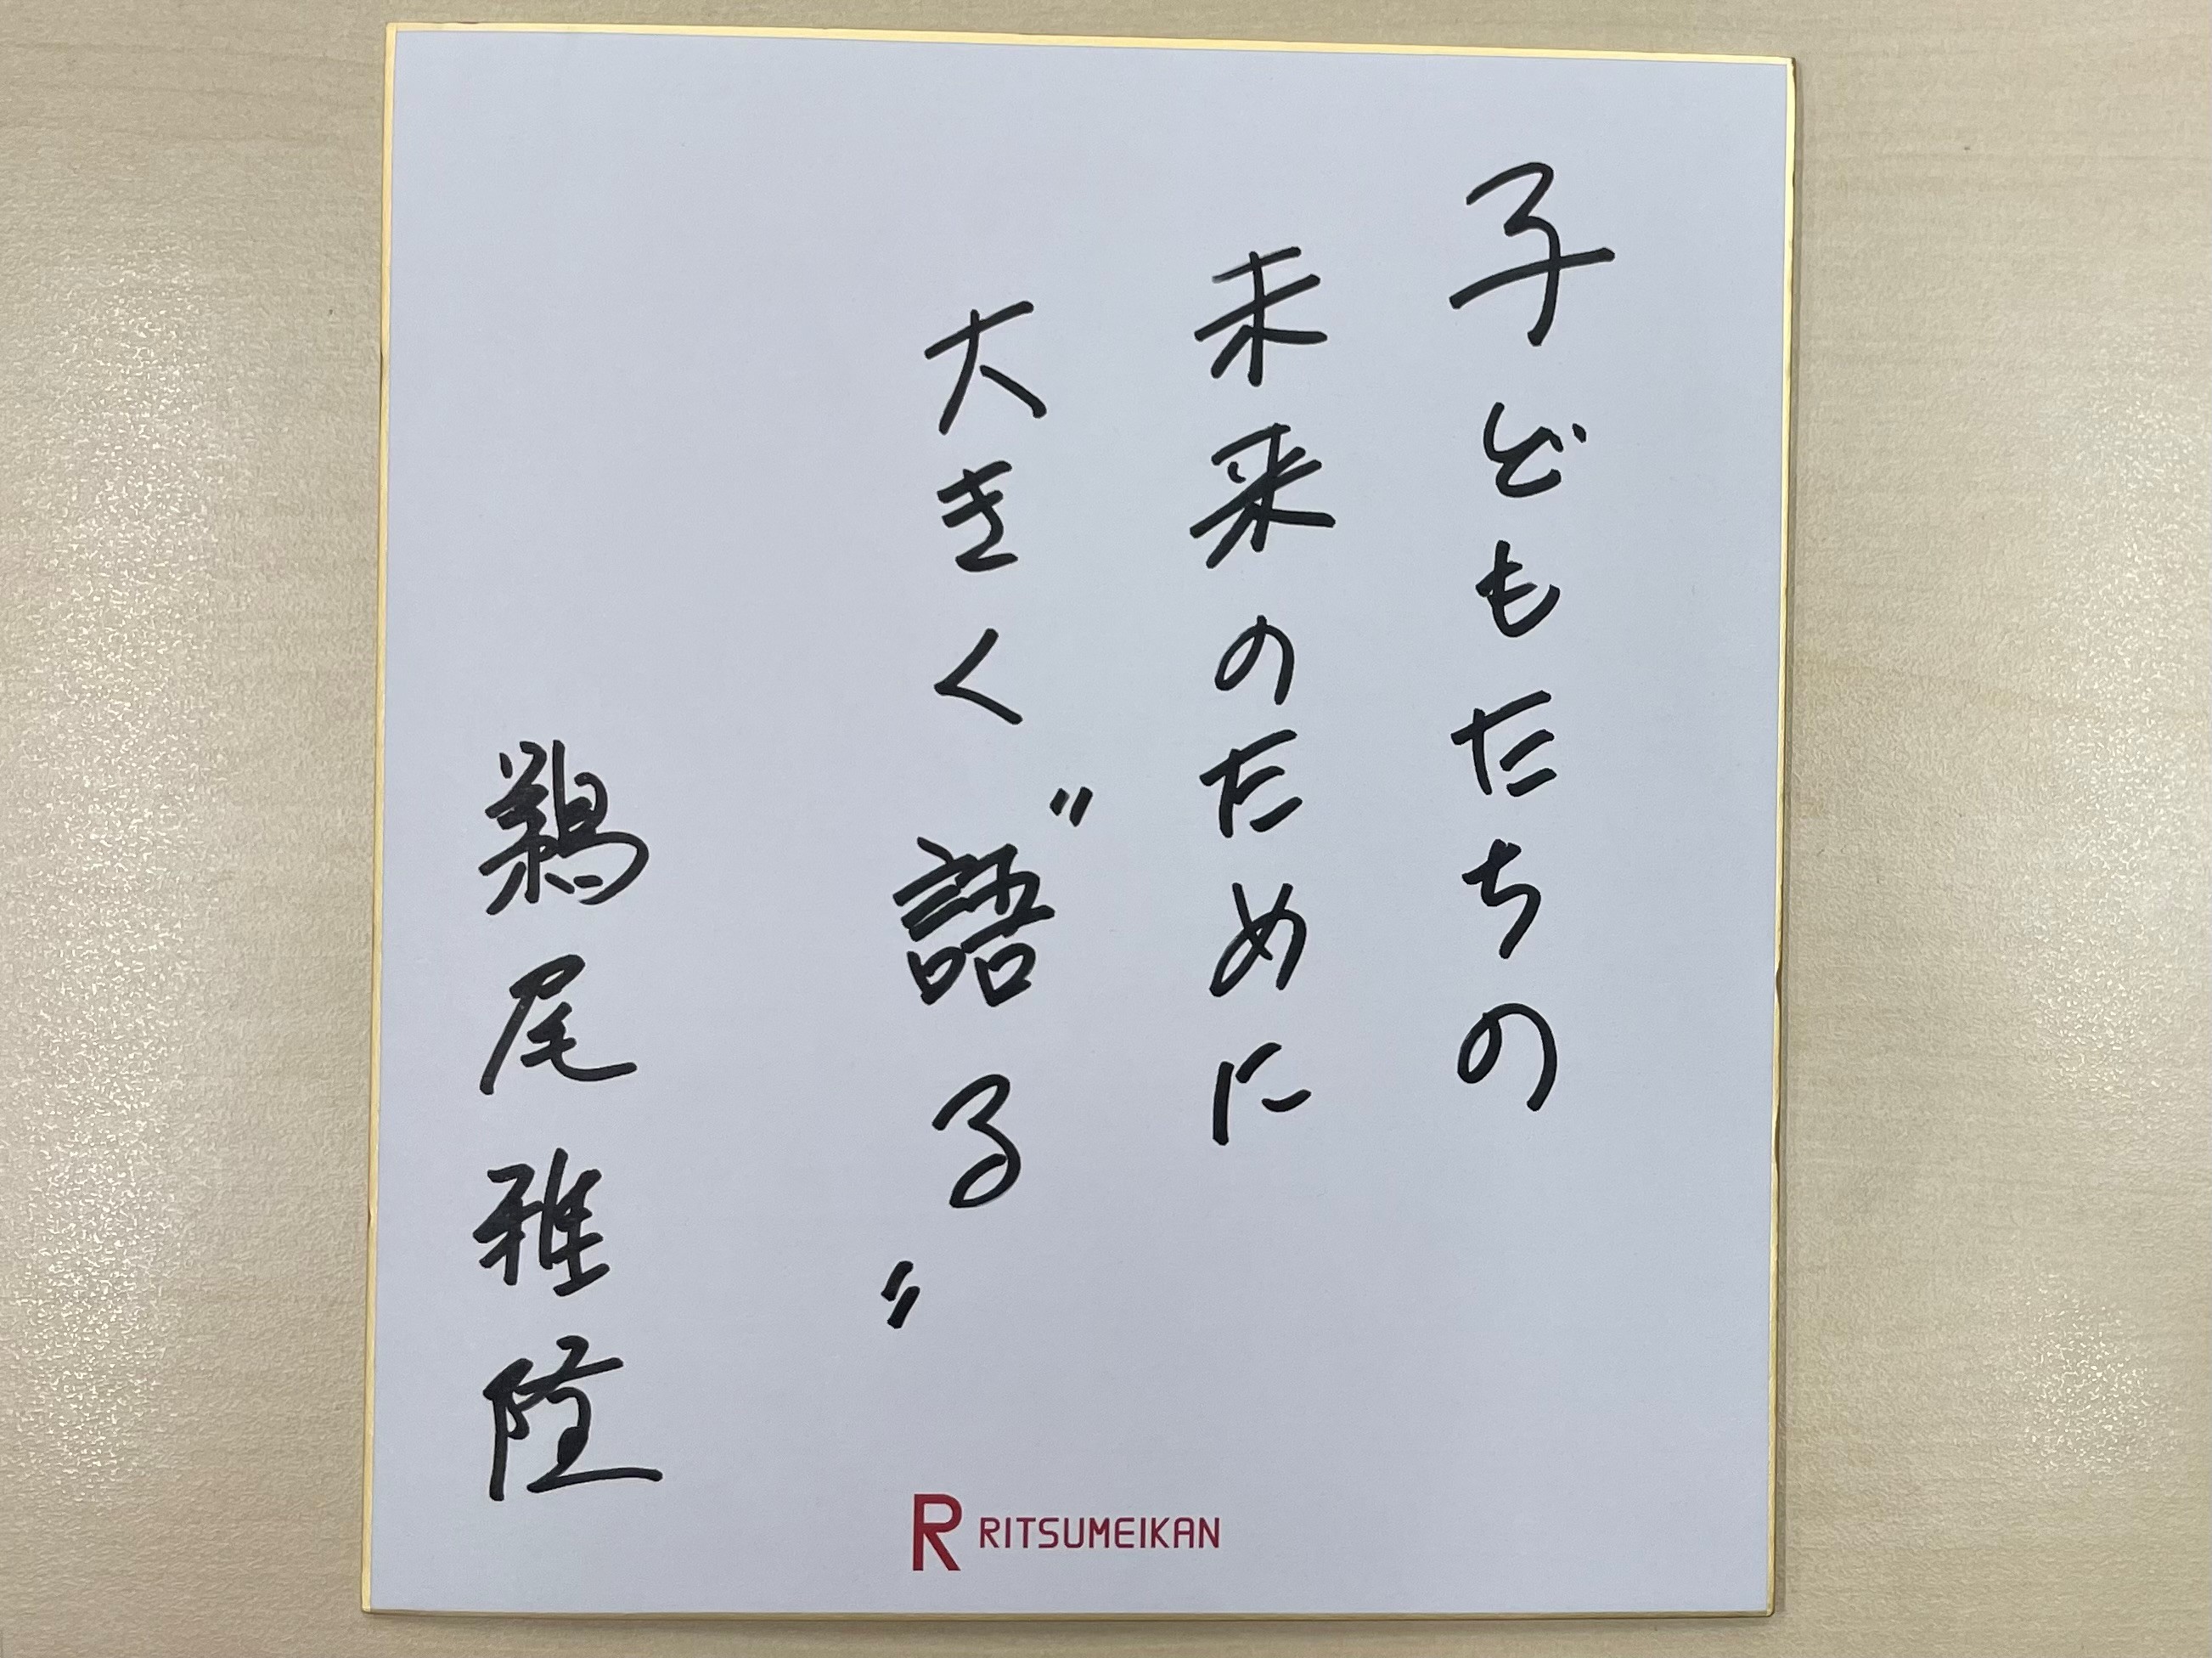 子どもたちの
未来のために
大きく〝語る〟
鵜尾雅隆
R RITSUMEIKAN